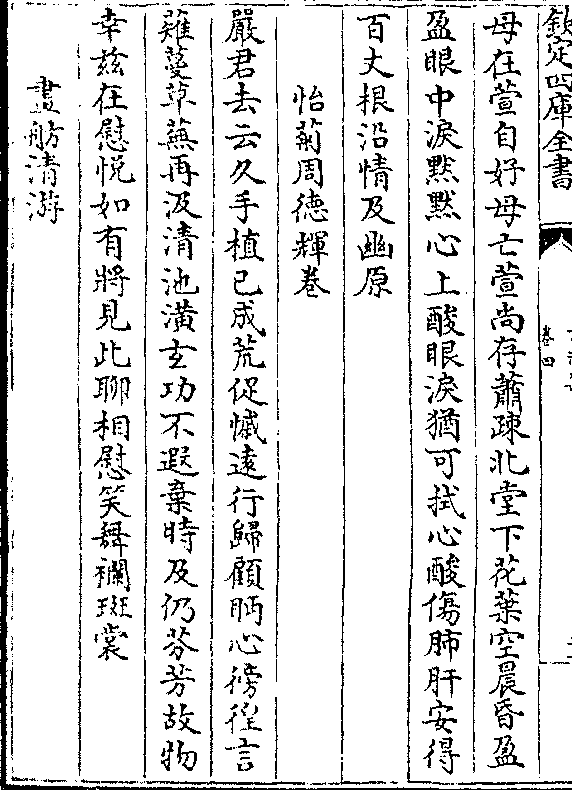 欽定四庫全書
卷四
母在萱自好母亡萱尚存蕭疎北堂下花葉空晨昏盈
盈眼中淚黙黙心上酸眼淚猶可拭心酸傷肺肝安得
百丈根沿情及幽原
怡菊周徳輝卷
嚴君去云久手植已成荒促慽逺行歸顧眄心徬徨言
薙蔓草蕪再汲清池潢玄功不遐棄時及仍芬芳故物
幸兹在慰悦如有將見此聊相慰笑舞襴斑裳
畫舫清游